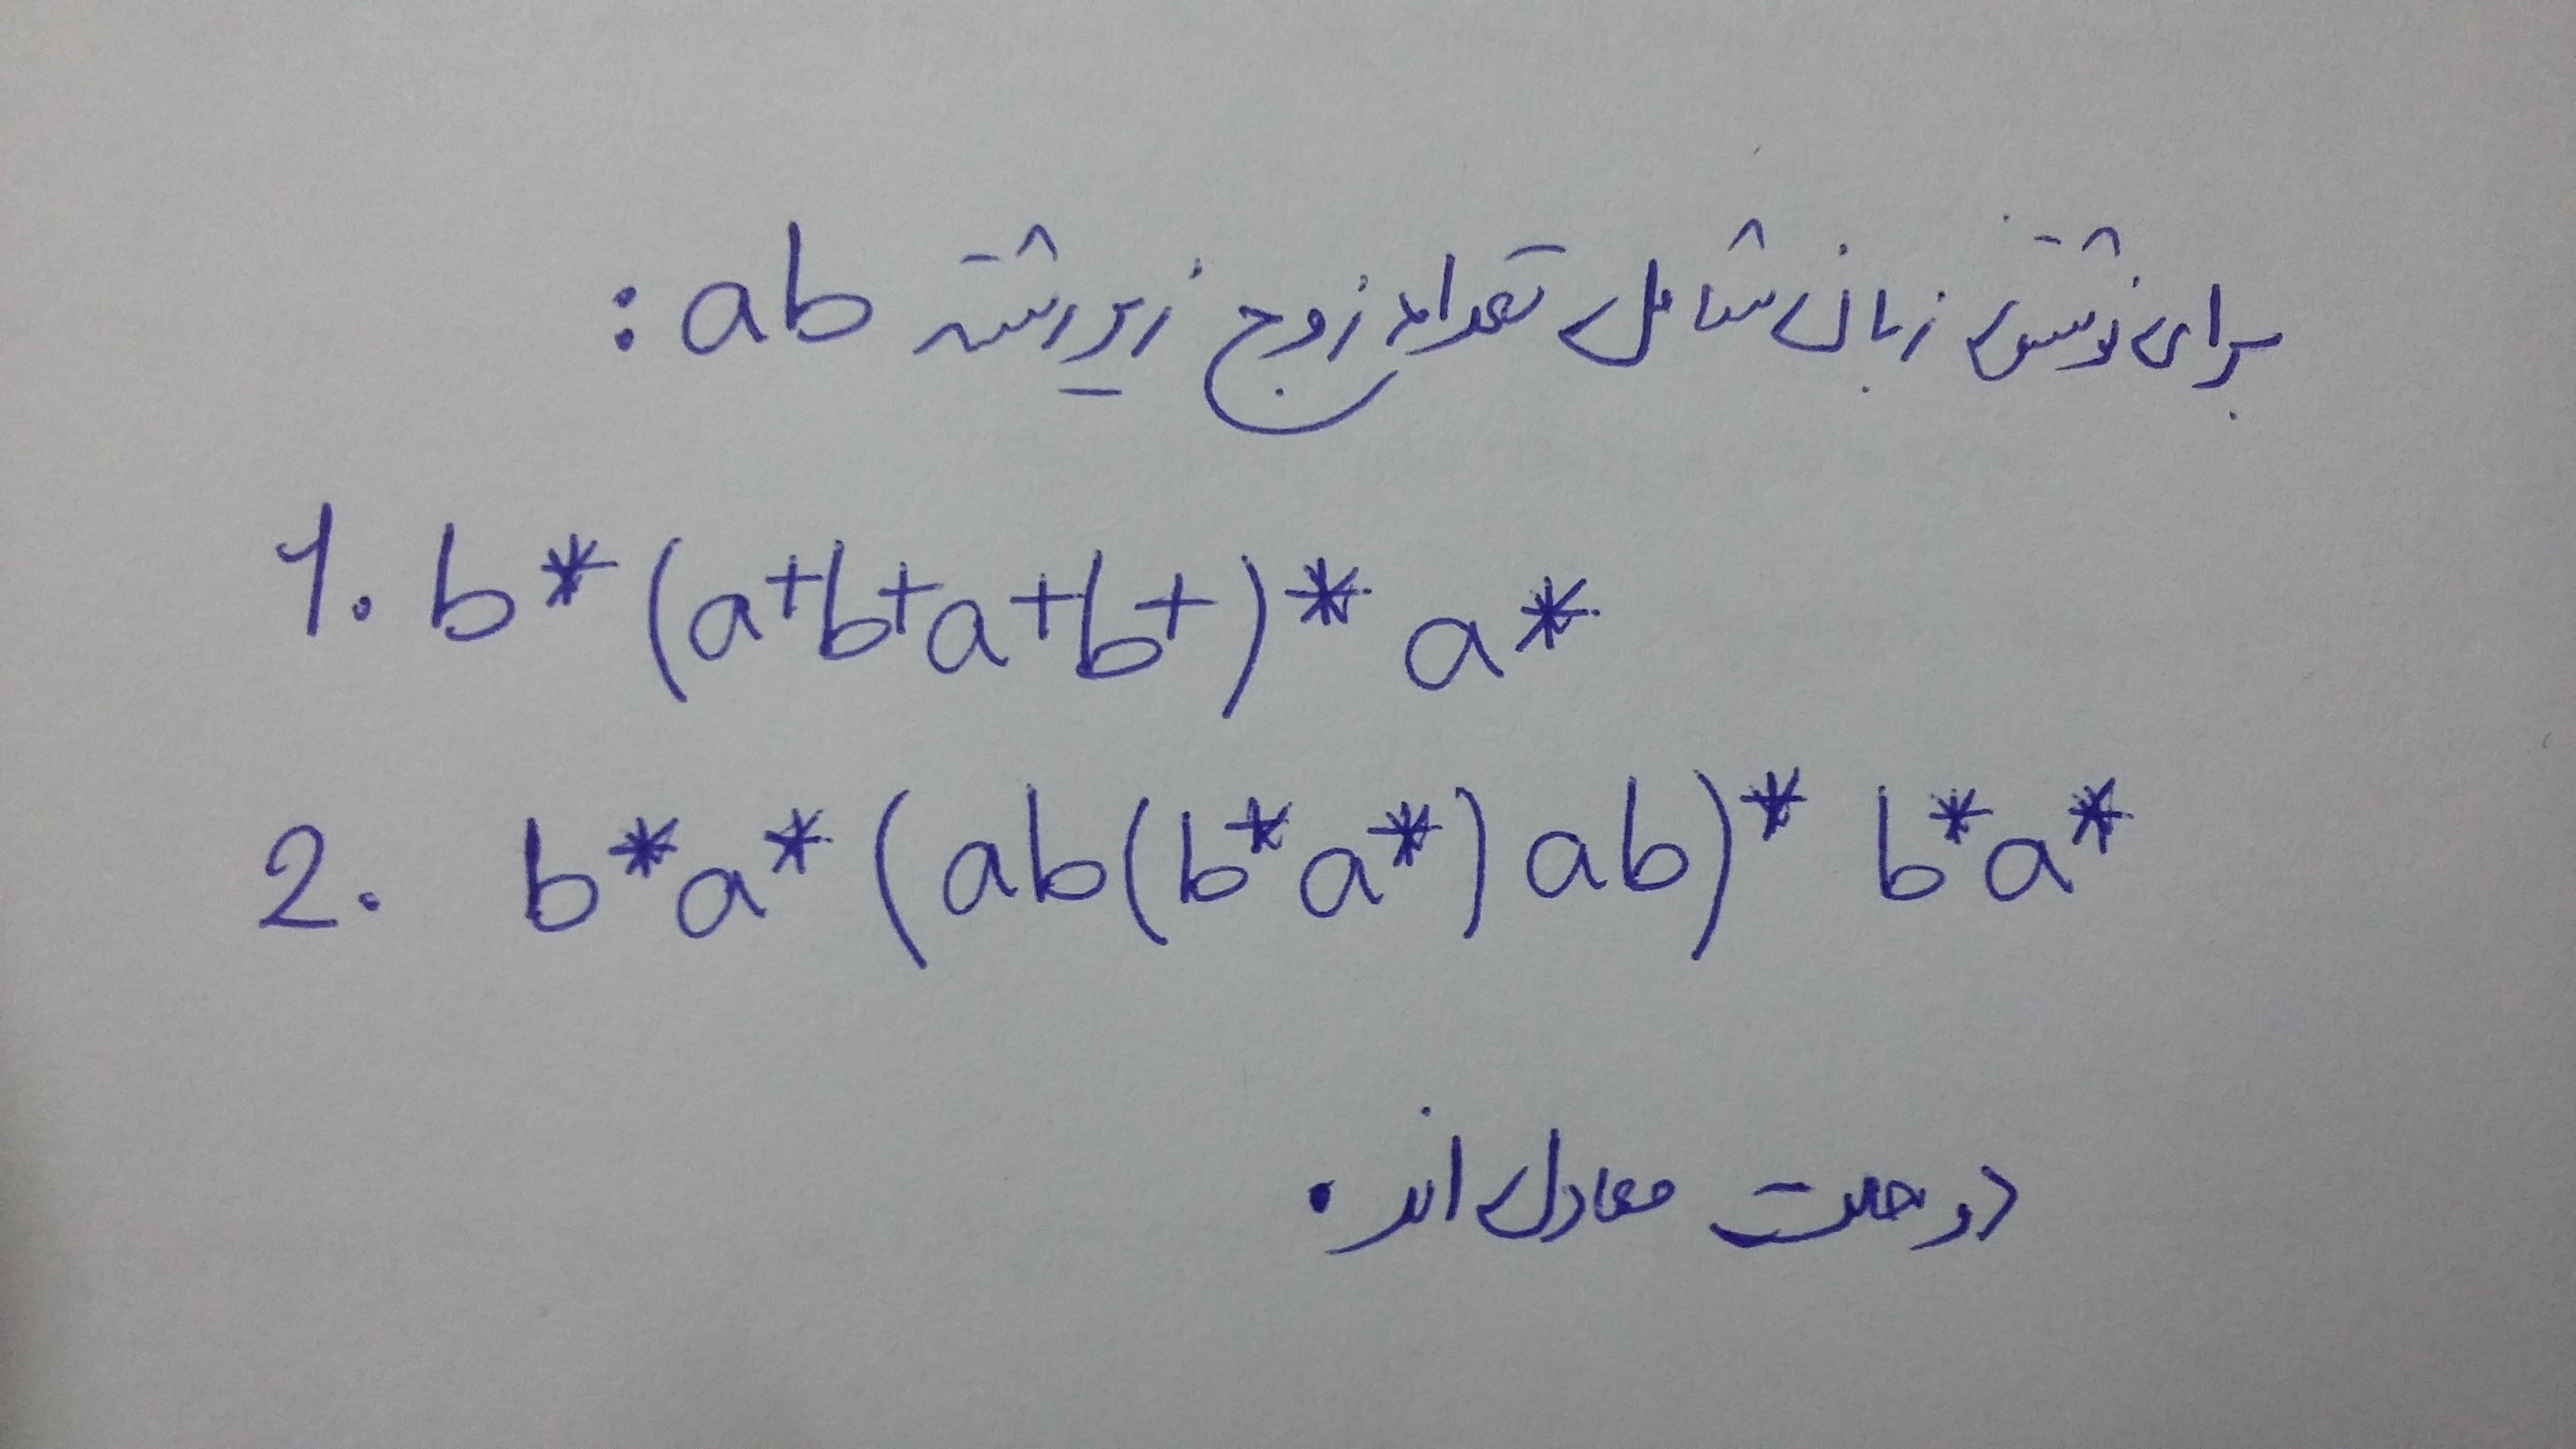 برای نوشتن زبان شامل تعداد زوج زیررشته ab :
1. b* (a+b+a+b+)* a*
2. b*a* (ab(b*a*)ab)* b*a*
دو حالت معادل اند.